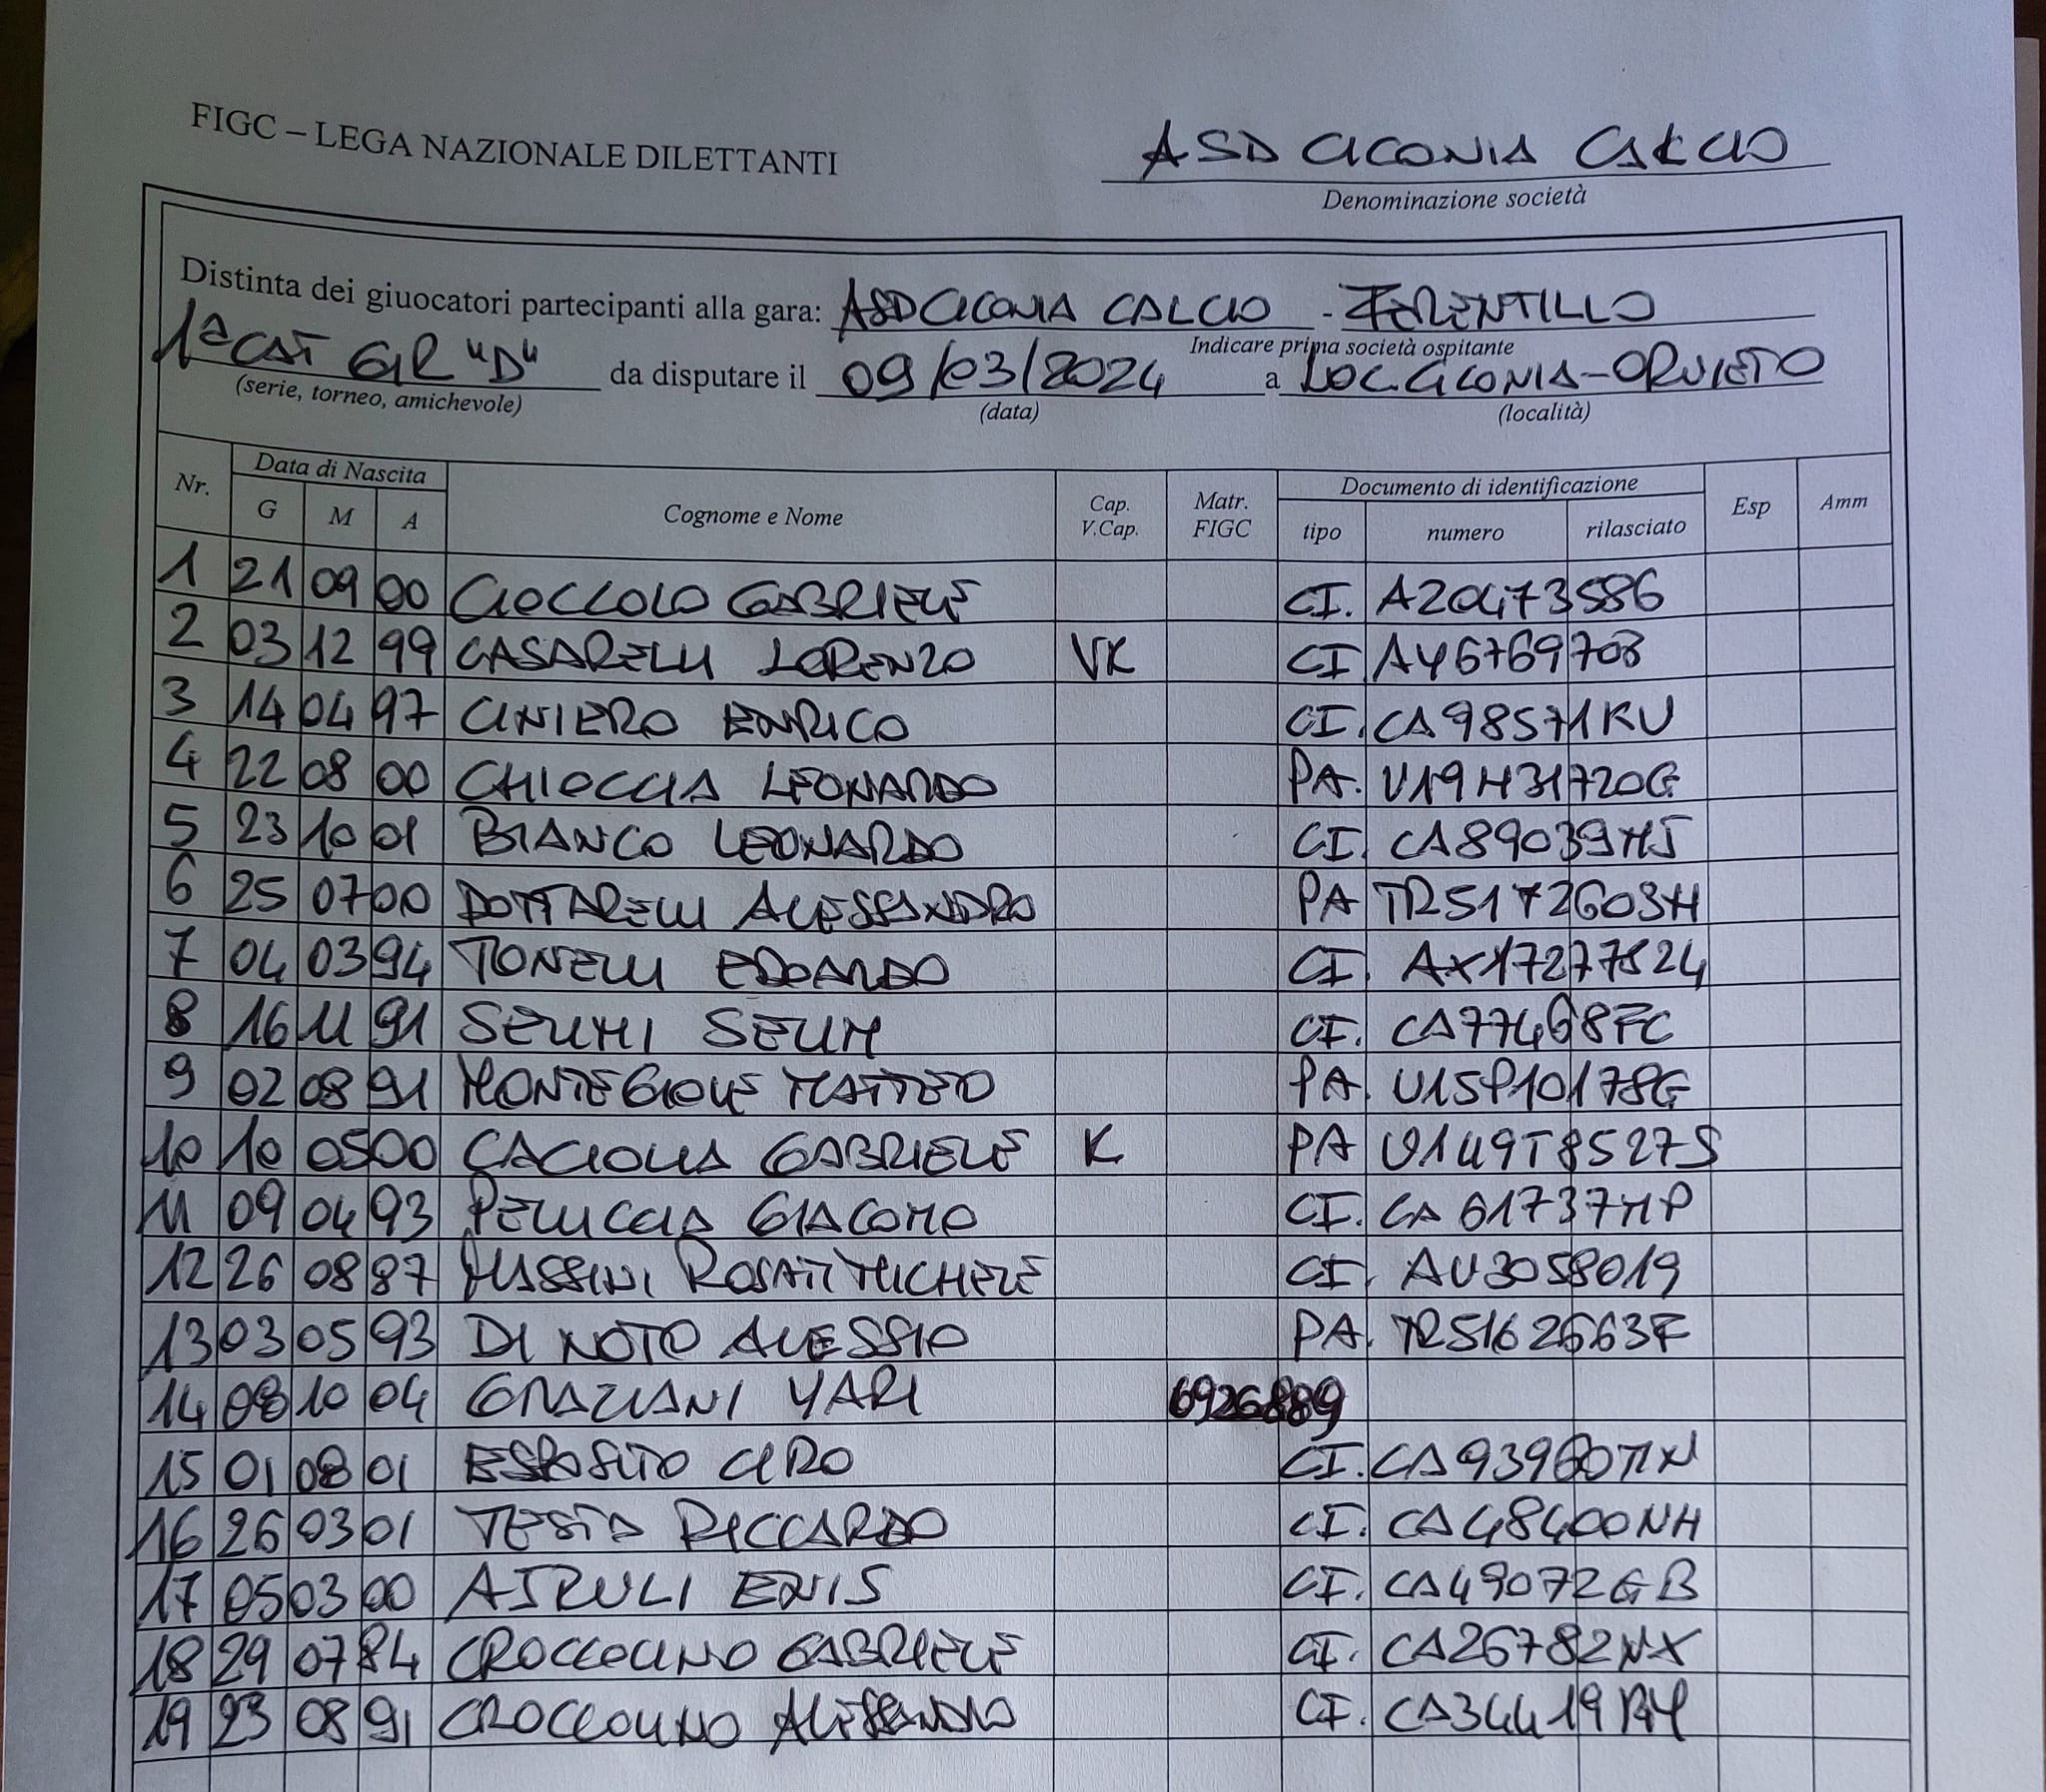 FIGC – LEGA NAZIONALE DILETTANTI
ASD CICONIA CALCIO
Denominazione società
Distinta dei giuocatori partecipanti alla gara: ASD CICONIA CALCIO - FERENTILLO
Indicare prima società ospitante
1ª CAT GIR "D" da disputare il 09/03/2024 a LOC. CICONIA-ORVIETO
(serie, torneo, amichevole) (data) (località)
Nr. Data di Nascita Cognome e Nome Cap. V.Cap. Matr. FIGC Documento di identificazione Esp Amm
G M A tipo numero rilasciato
1 21 09 00 CIOCCOLO GABRIELE CI. AZ0473586
2 03 12 99 CASARELLI LORENZO VK CI AY6769708
3 14 04 97 CINIERO ENRICO CI. CA98571KU
4 22 08 00 CHIOCCIA LEONARDO PA. U19H31720G
5 23 10 01 BIANCO LEONARDO CI. CA89039MJ
6 25 07 00 DOTTARELLI ALESSANDRO PA TR5172603H
7 04 03 94 TONELLI EDOARDO CI.
8 16 11 91 SELIMI SELIM CI. CA77468FC
9 02 08 91 MONTEGIOVE MATTEO PA. U15P10178G
10 10 05 00 CACIOLLA GABRIELE K PA U149T8527S
11 09 04 93 PELLICCIA GIACOMO CI. CA61737MP
12 26 08 87 MASSINI ROSATI MICHELE CI. AU3058019
13 03 05 93 DI NOTO ALESSIO PA. TR5162663F
14 08 10 04 GRAZIANI YARI 6926889
15 01 08 01 ESPOSITO CIRO CI.
16 26 03 01 TESTA RICCARDO CI. CA48400NH
17 05 03 00 AJRULI ENIS CI. CA49072GB
18 29 07 84 CROCCOLINO GABRIELE CI. CA26782NX
19 23 08 91 CROCCOLINO ALESSANDRO CI.